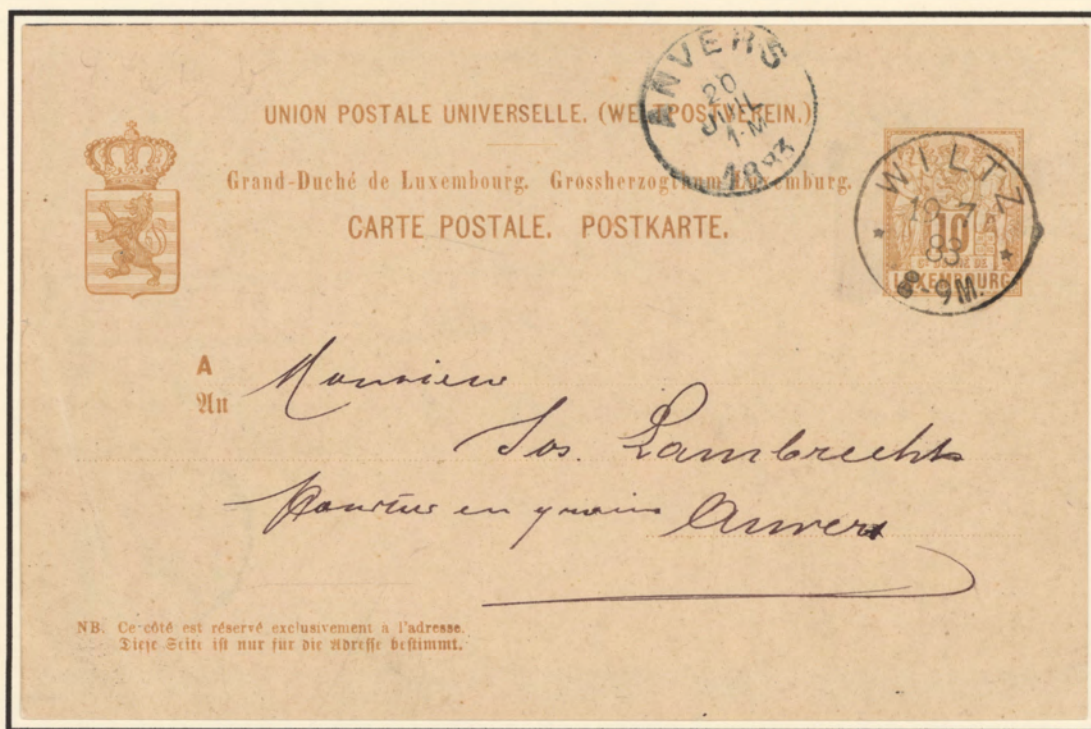 UNION POSTALE UNIVERSELLE. (WELTPOSTVEREIN.)
Grand-Duché de Luxembourg. Grossherzogthum Luxemburg.
CARTE POSTALE. POSTKARTE.
ANVERS
20
JUIL
1-M
1883
WILTZ
19 7
83
8-9M.
10
LUXEMBOURG
A
An
Monsieur
Jos. Lambrechts
en grains Anvers
NB. Ce côté est réservé exclusivement à l'adresse.
Diese Seite ist nur für die Adresse bestimmt.